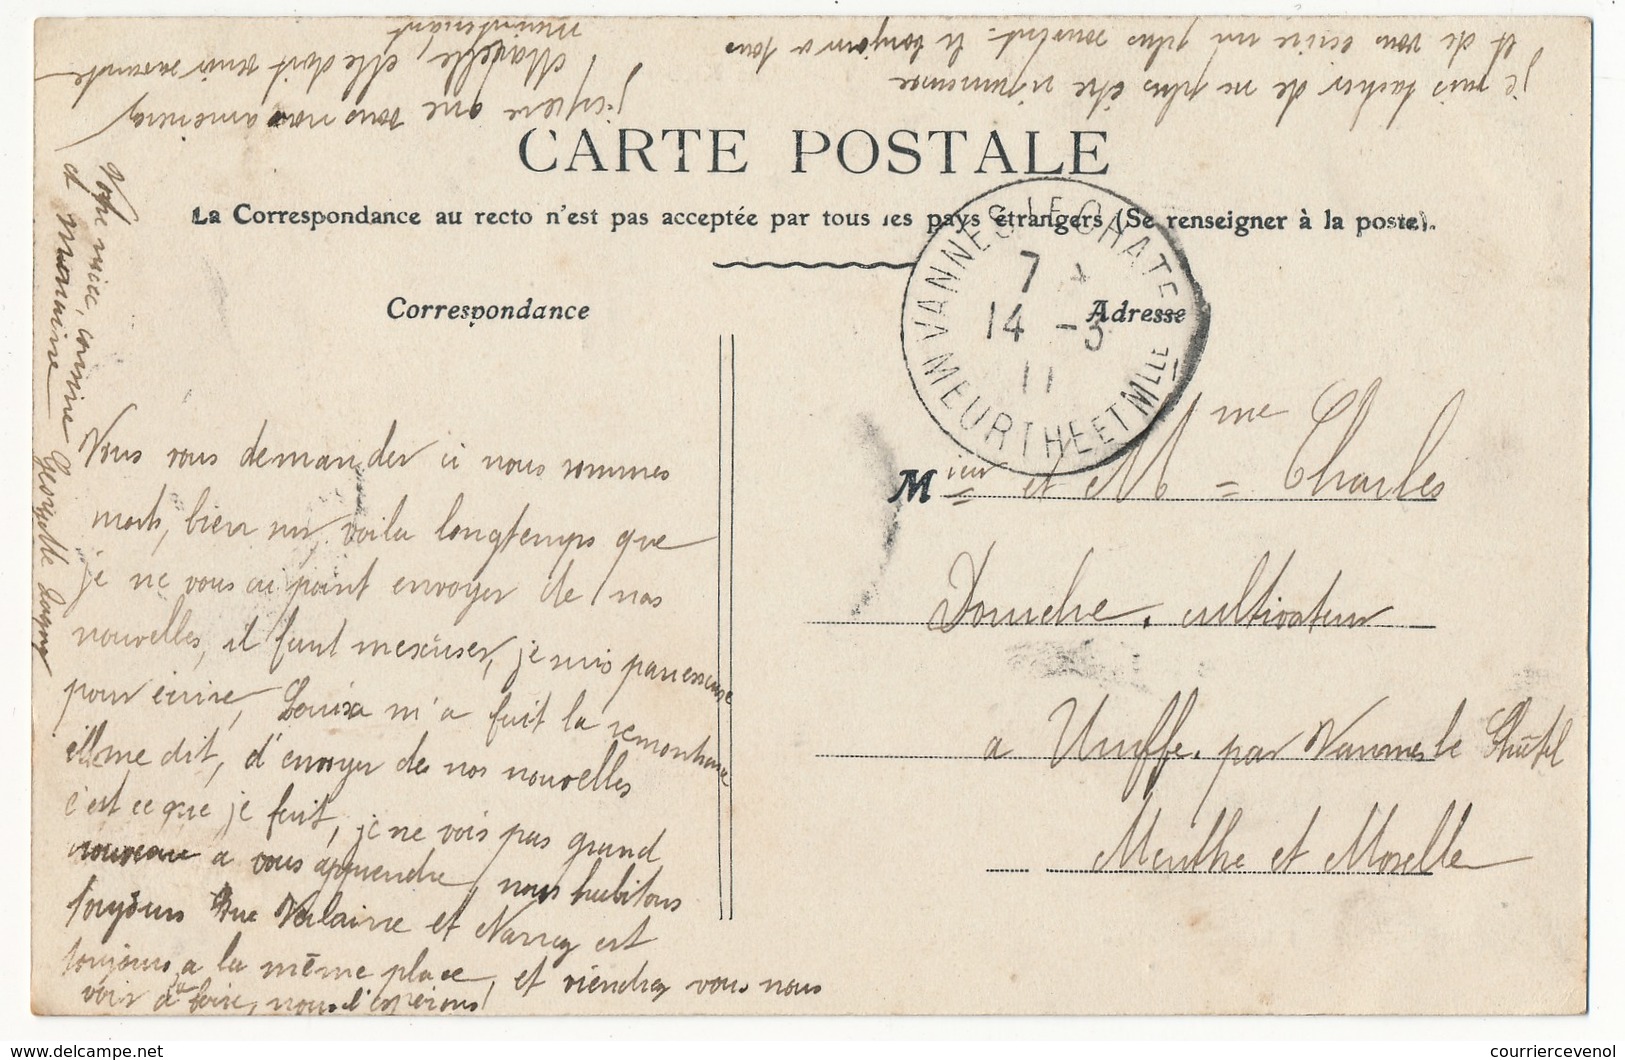 CARTE POSTALE
La Correspondance au recto n'est pas acceptée par tous les pays étrangers (Se renseigner à la poste).
Correspondance
Adresse
VANNES LE CHATEL
7
14 - 3
11
MEURTHE ET MLLE
Mieur et Mme Charles
Douche. cultivateur
a Uruffe. par Vannes le Châtel
Meurthe et Moselle
Vous vous demander si nous sommes
morts, bien sur voila longtemps que
je ne vous ai point envoyer de nos
nouvelles, il faut m'exiuser, je suis paresseuse
pour écrire, Louisa m'a fait la remontrance
elle me dit, d'envoyer de nos nouvelles
c'est ce que je fait, je ne vois pas grand
nouveau a vous apprendre, nous habitons
toujours Rue Verlaine et Nancy est
toujours a la même place, et viendrez vous nous
voir a la foire, nous l'espérons
j'espère que vous nous amènerez
Marcelle, elle doit venir savante
maintenant
je vais tacher de ne plus être
et de vous écrire un plus souvent. a tous
Votre nièce, cousine
et marraine Georgette Lagny
courriercevenol
www.delcampe.net